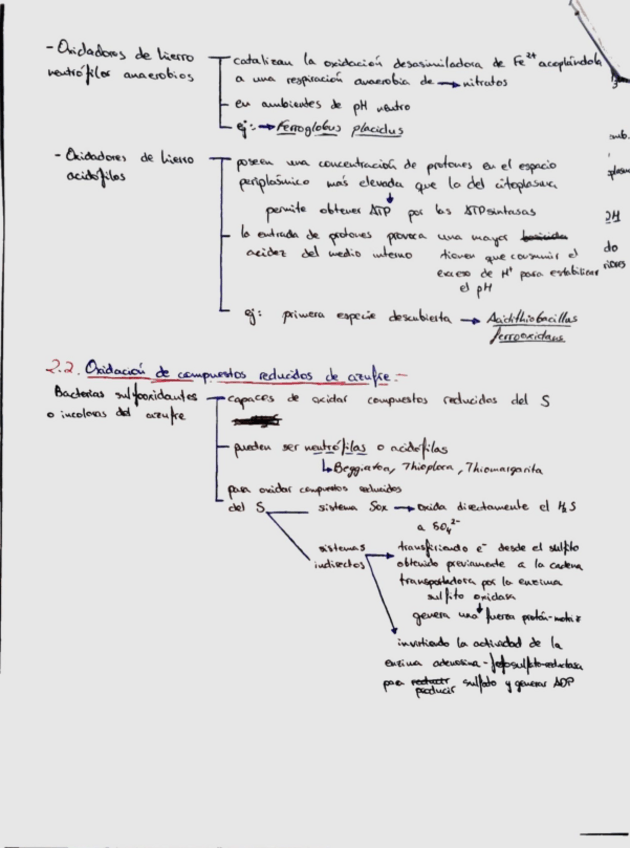 - Oxidadores de hierro
neutrófilos anaerobios
catalizan la oxidación desasimiladora de Fe²⁺ acoplándola
a una respiración anaerobia de → nitratos
en ambientes de pH neutro
ej: → Ferroglobus placidus
- Oxidadores de hierro
acidófilos
poseen una concentración de protones en el espacio
periplásmico más elevada que la del citoplasma
↓
permite obtener ATP por las ATPsintasas
la entrada de protones provoca una mayor
acidez del medio interno
tienen que consumir el
exceso de H⁺ para estabilizar
el pH
ej: primera especie descubierta → Acidithiobacillus
ferrooxidans
2.2. Oxidación de compuestos reducidos de azufre.-
Bacterias sulfooxidantes
o incoloras del azufre
capaces de oxidar compuestos reducidos del S
pueden ser neutrófilas o acidófilas
↳ Beggiatoa, Thioploca, Thiomargarita
para oxidar compuestos reducidos
del S
sistema Sox → oxida directamente el H₂S
a SO₄²⁻
sistemas
indirectos
transfiriendo e⁻ desde el sulfito
obtenido previamente a la cadena
transportadora por la enzima
sulfito oxidasa
↓
genera una fuerza protón-motriz
invirtiendo la actividad de la
enzima adenosina-fosfosulfato-reductasa
para producir sulfato y generar ADP
amb.
plasm
2H
do